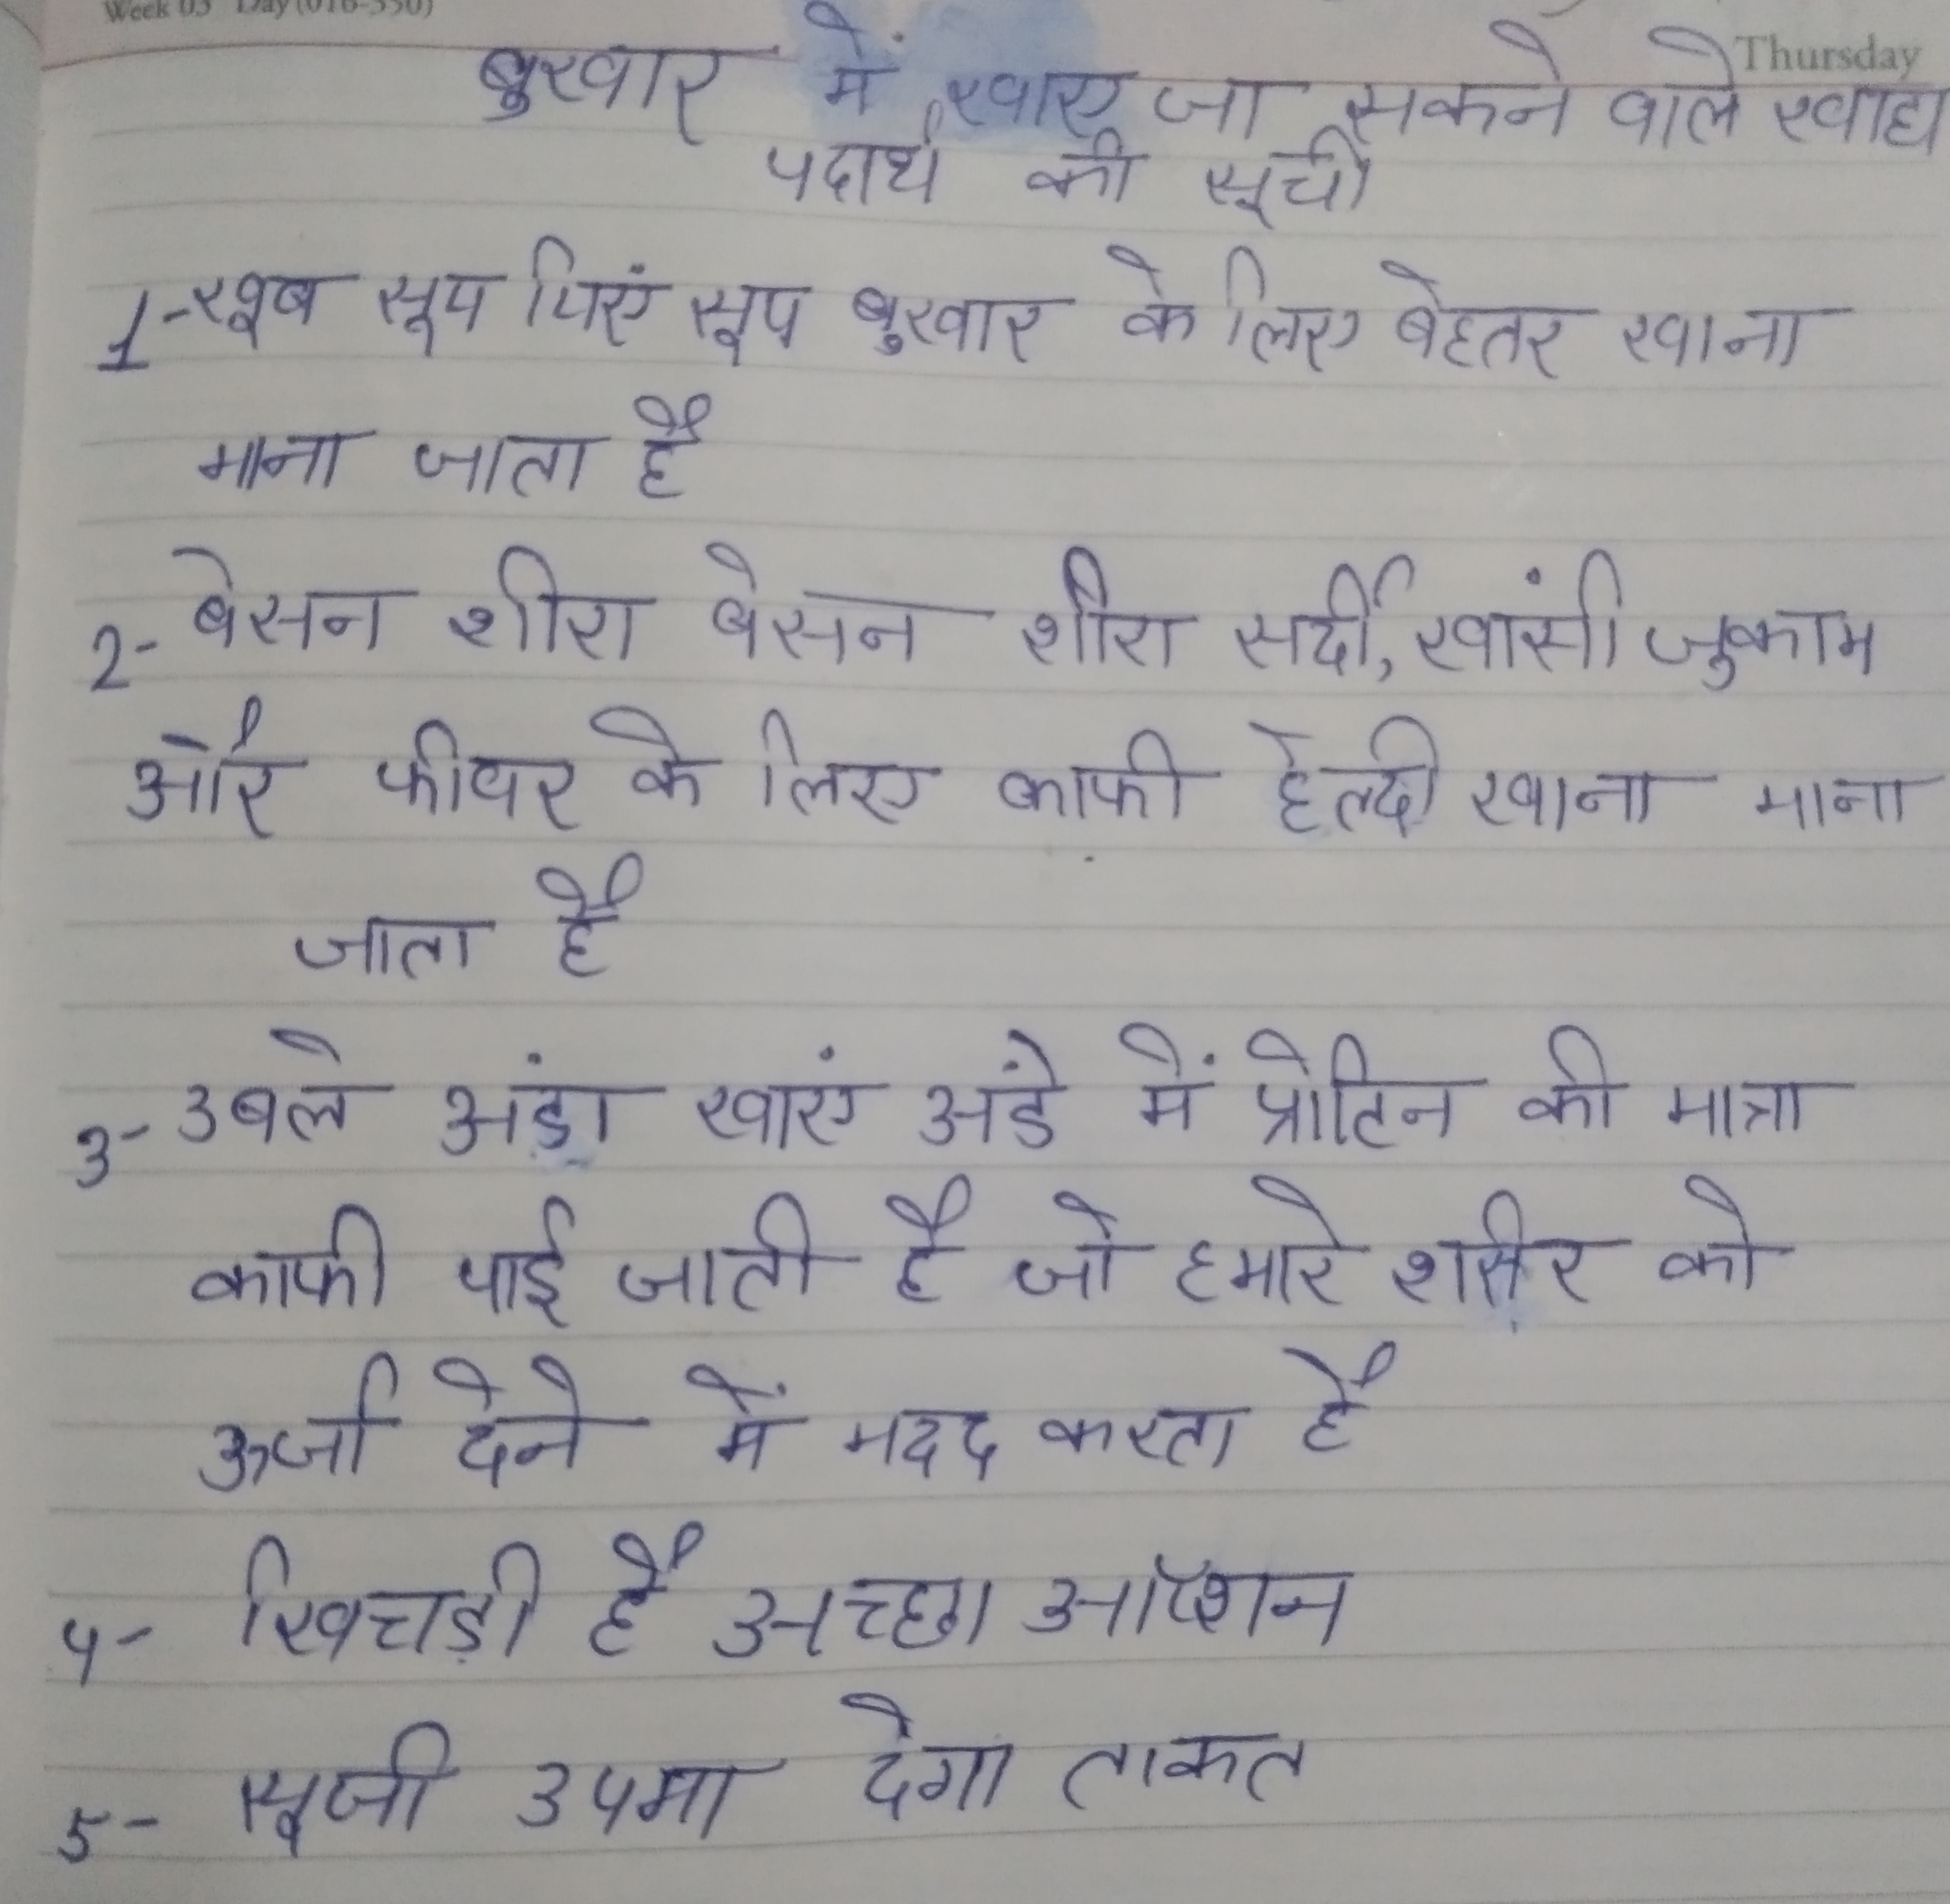 Week 03 Day (016-350)
Thursday
बुखार में खाए जा सकने वाले खाद्य
पदार्थ की सूची
1- खूब सूप पिएं सूप बुखार के लिए बेहतर खाना
माना जाता है
2- बेसन शीरा बेसन शीरा सर्दी, खांसी जुकाम
और फीवर के लिए काफी हेल्दी खाना माना
जाता है
3- उबले अंडा खाएं अंडे में प्रोटिन की मात्रा
काफी पाई जाती है जो हमारे शरीर को
ऊर्जा देने में मदद करता है
4- खिचड़ी है अच्छा आॅप्शन
5- सूजी उपमा देगा ताकत